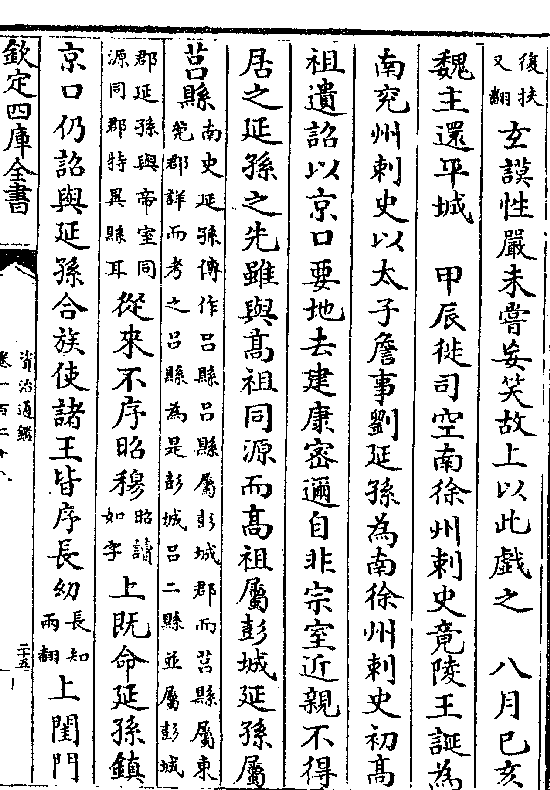 復扶
又翻
玄謨性嚴未嘗妄笑故上以此戲之　八月己亥
魏主還平城　甲辰徙司空南徐州刺史竟陵王誕為
南兖州刺史以太子詹事劉延孫為南徐州刺史初高
祖遺詔以京口要地去建康密邇自非宗室近親不得
居之延孫之先雖與高祖同源而高祖屬彭城延孫屬
莒縣
南史延孫傳作吕縣吕縣屬彭城郡而莒縣屬東
莞郡詳而考之吕縣為是彭城吕二縣並屬彭城
郡延孫與帝室同
源同郡特異縣耳
從來不序昭穆
昭讀
如字
上既命延孫鎮
京口仍詔與延孫合族使諸王皆序長幼
長知
兩翻
上閨門
欽定四庫全書
資治通鑑
卷一百二十八
三十五